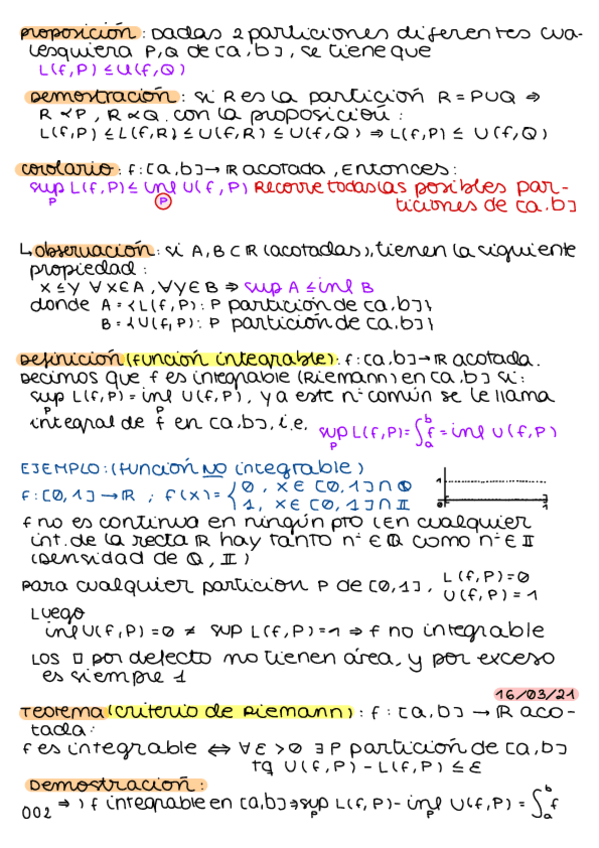 Proposición: Dadas 2 particiones diferentes cua-
lesquiera P,Q de [a,b], se tiene que
L(f,P) ≤ U(f,Q)
Demostración: si R es la partición R = P∪Q ⇒
R ≺ P, R ≺ Q. con la proposición:
L(f,P) ≤ L(f,R) ≤ U(f,R) ≤ U(f,Q) ⇒ L(f,P) ≤ U(f,Q)
Corolario: f:[a,b]→ℝ acotada, Entonces:
sup L(f,P) ≤ inf U(f,P) Recorre todas las posibles par-
P P ticiones de [a,b]
↳ observación: si A,B ⊂ ℝ (acotadas), tienen la siguiente
propiedad:
x ≤ y ∀ x∈A, ∀y∈B ⇒ sup A ≤ inf B
donde A = {L(f,P): P partición de [a,b]}
B = {U(f,P): P partición de [a,b]}
Definición (función integrable): f:[a,b]→ℝ acotada.
Decimos que f es integrable (Riemann) en [a,b] si:
sup L(f,P) = inf U(f,P), y a este nº común se le llama
P P
integral de f en [a,b], i.e. sup L(f,P) = ∫ₐᵇ f = inf U(f,P)
P
EJEMPLO: (función NO integrable)
f:[0,1]→ℝ ; f(x) = { 0, x∈[0,1]∩ℚ
1, x∈[0,1]∩𝕀
1
0 1
f no es continua en ningún pto (En cualquier
int. de la recta ℝ hay tanto nº ∈ ℚ como nº ∈ 𝕀
(Densidad de ℚ, 𝕀)
Para cualquier partición P de [0,1], L(f,P)=0
U(f,P)=1
Luego
inf U(f,P) = 0 ≠ sup L(f,P) = 1 ⇒ f no integrable
LOS □ por defecto no tienen área, y por exceso
es siempre 1
16/03/21
Teorema (criterio de Riemann): f:[a,b]→ℝ aco-
tada:
f es integrable ⇔ ∀ε>0 ∃ P partición de [a,b]
tq U(f,P) - L(f,P) ≤ ε
Demostración:
002 ⇒) f integrable en [a,b] ⇒ sup L(f,P) - inf U(f,P) = ∫ₐᵇ f
P P